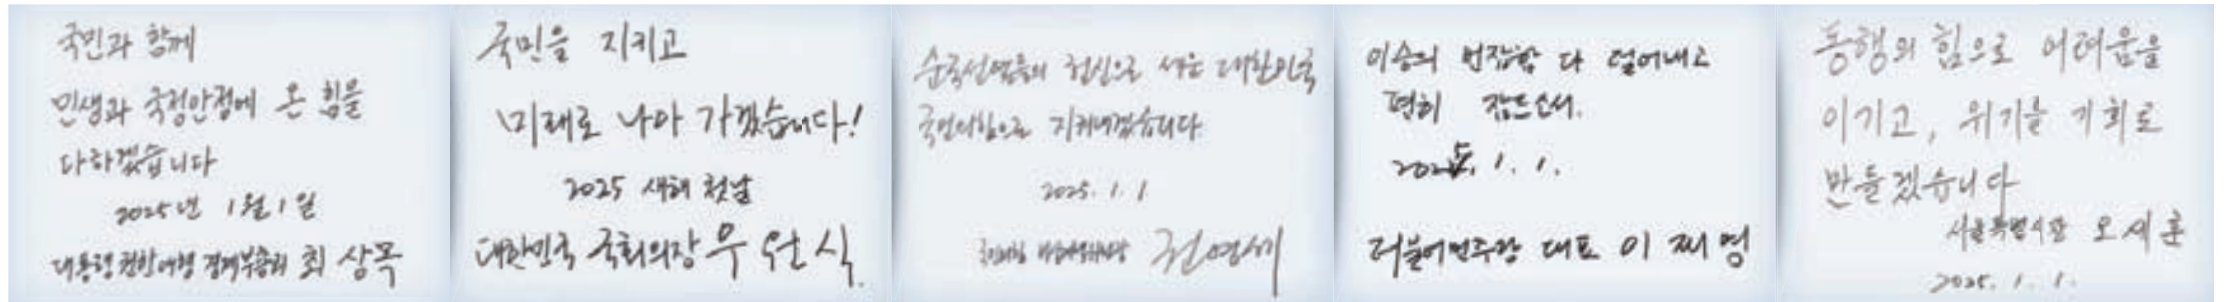 국민과 함께
민생과 국정안정에 온 힘을
다하겠습니다
2025년 1월 1일
대통령 권한대행 경제부총리 최 상목
국민을 지키고
미래로 나아 가겠습니다!
2025 새해 첫날
대한민국 국회의장 우 원 식
순국선열들의 헌신으로 세운 대한민국
국민의힘으로 지켜내겠습니다
2025. 1. 1
국민의힘 비상대책위원장 권영세
이승의 번잡함 다 덜어내고
편히 잠드소서.
2025. 1. 1.
더불어민주당 대표 이 재 명
동행의 힘으로 어려움을
이기고, 위기를 기회로
만들겠습니다
서울특별시장 오 세 훈
2025. 1. 1.